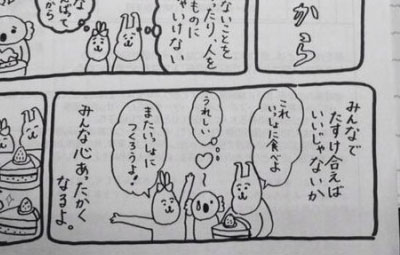 から
ないことを
ったり、人を
ものに
ゃいけない
みんなで
たすけ合えば
いいじゃないか
これ
いっしょに食べよ
うれしい
またいっしょに
つくろうよ!
みんな心あったかく
なるよ。